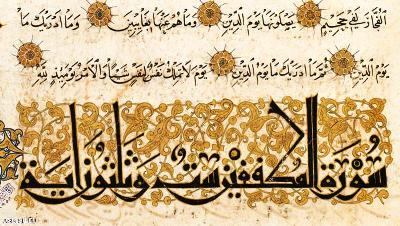 الفجار لفي جحيم يصلونها يوم الدين وما هم عنها بغائبين وما ادريك ما
يوم الدين ثم ما ادريك ما يوم الدين يوم لا تملك نفس لنفس شيئا والامر يومئذ لله
سورة المطففين ست وثلثون اية